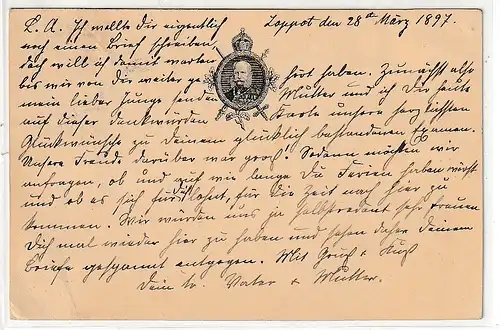 Zoppot den 28st März 1897.
L. A. Ich wollte Dir eigentlich
noch einen Brief schreiben,
doch will ich damit warten
bis wir von Dir weiter gehört haben. Zunächst also
mein lieber Junge senden Mutter und ich Dir heute
auf dieser denkwürden Karte unsere herzlichsten
Glückwünsche zu Deinem glücklich bestandenen Examen.
Unsere Freude darüber war groß! Sodann möchten wir
anfragen, ob und auf wie lange Du Ferien haben wirst
und ob es sich für Dich lohnt, für die Zeit nach hier zu
kommen. Wir würden uns ja selbstredent sehr freuen
Dich mal wieder hier zu haben und sehen daher Deinem
Briefe gespannt entgegen. Mit Gruß & Kuß
Dein tr. Vater & Mutter.